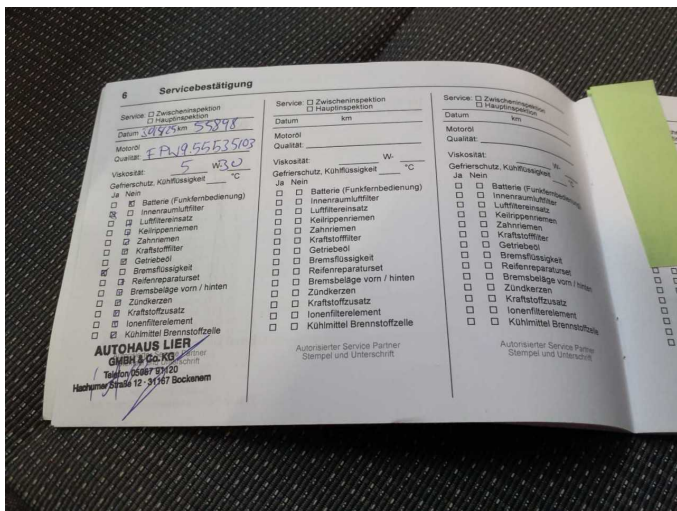 6 Servicebestätigung
Service: □ Zwischeninspektion
□ Hauptinspektion
Datum km 55898
Motoröl
Qualität:
Viskosität: 5 W-30
Gefrierschutz, Kühlflüssigkeit °C
Ja Nein
Batterie (Funkfernbedienung)
Innenraumluftfilter
Luftfiltereinsatz
Keilrippenriemen
Zahnriemen
Kraftstofffilter
Getriebeöl
Bremsflüssigkeit
Reifenreparaturset
Bremsbeläge vorn / hinten
Zündkerzen
Kraftstoffzusatz
Ionenfilterelement
Kühlmittel Brennstoffzelle
AUTOHAUS LIER
GMBH & Co. KG
Telefon 05067 91120
Hachumer Straße 12 · 31167 Bockenem
Service: □ Zwischeninspektion
□ Hauptinspektion
Datum km
Motoröl
Qualität:
Viskosität: W-
Gefrierschutz, Kühlflüssigkeit °C
Ja Nein
□ □ Batterie (Funkfernbedienung)
□ □ Innenraumluftfilter
□ □ Luftfiltereinsatz
□ □ Keilrippenriemen
□ □ Zahnriemen
□ □ Kraftstofffilter
□ □ Getriebeöl
□ □ Bremsflüssigkeit
□ □ Reifenreparaturset
□ □ Bremsbeläge vorn / hinten
□ □ Zündkerzen
□ □ Kraftstoffzusatz
□ □ Ionenfilterelement
□ □ Kühlmittel Brennstoffzelle
Autorisierter Service Partner
Stempel und Unterschrift
Service: □ Zwischeninspektion
□ Hauptinspektion
Datum km
Motoröl
Qualität:
Viskosität: W-
Gefrierschutz, Kühlflüssigkeit °C
Ja Nein
□ □ Batterie (Funkfernbedienung)
□ □ Innenraumluftfilter
□ □ Luftfiltereinsatz
□ □ Keilrippenriemen
□ □ Zahnriemen
□ □ Kraftstofffilter
□ □ Getriebeöl
□ □ Bremsflüssigkeit
□ □ Reifenreparaturset
□ □ Bremsbeläge vorn / hinten
□ □ Zündkerzen
□ □ Kraftstoffzusatz
□ □ Ionenfilterelement
□ □ Kühlmittel Brennstoffzelle
Autorisierter Service Partner
Stempel und Unterschrift